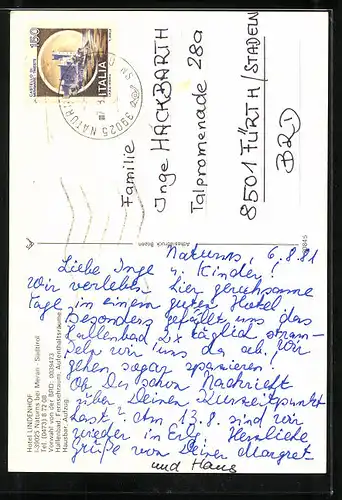 CASTELLO DI
150
ITALIA
39025 NATURNS
Familie
Inge HACKBARTH
Talpromenade 28a
8501 FÜRTH/STADELN
BRD
Naturns, 6.8.81
Liebe Inge u. Kinder!
Wir verleben hier geruhsame
Tage in einem guten Hotel
Besonders gefällt uns das
Hallenbad, 2x täglich stram-
peln wir uns da ab, Wir
gehen sogar spazieren!
Ob Du schon Nachricht
über Deinen Kurzeitpunkt
hast? Am 13.8. sind wir
wieder in Herzliche
Grüße von Deiner Margret
und Hans
Hotel LINDENHOF
I-39025 Naturns bei Meran - Südtirol
Tel. (0473) 8 72 08
Vorwahl von der BRD: 0039473
Hallenbad, Fernsehraum, Aufenthaltsräume
Hausbar, Aufzug